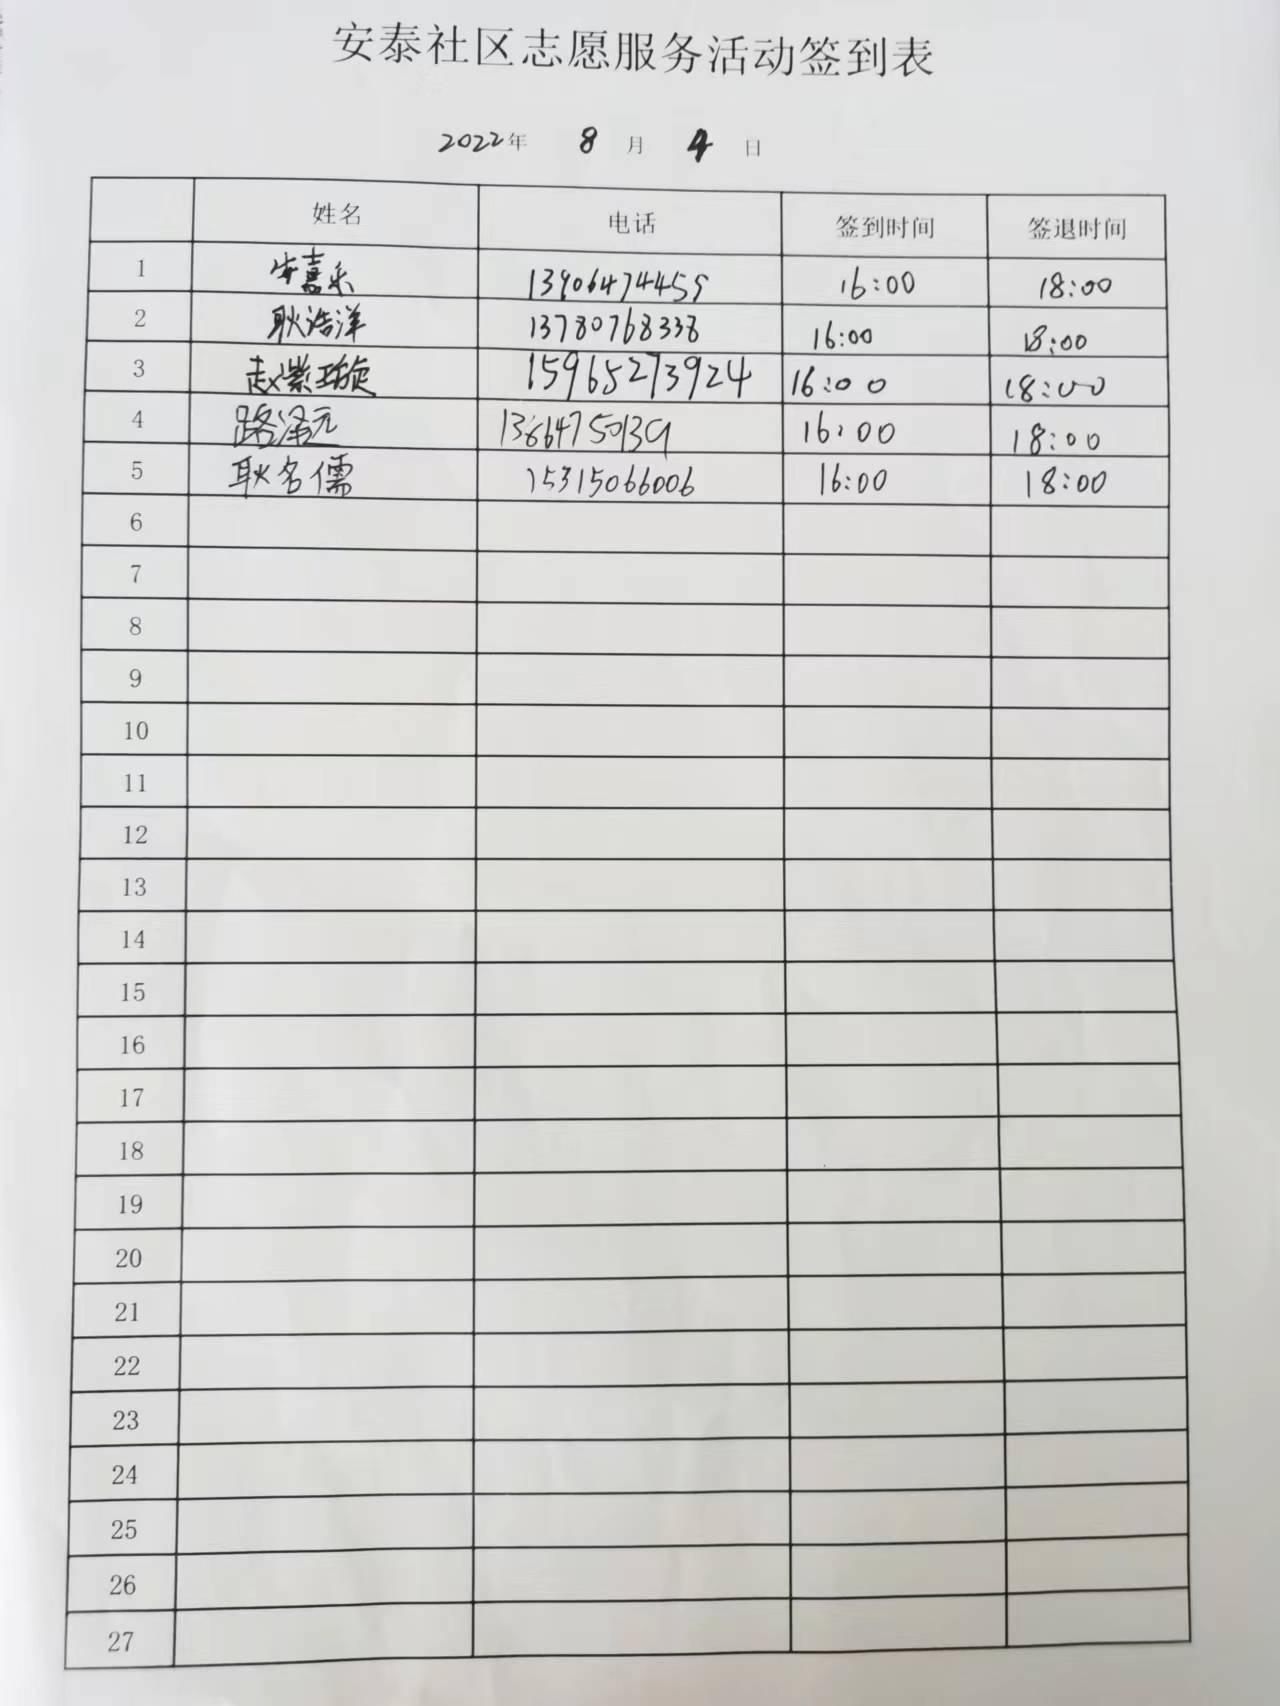 安泰社区志愿服务活动签到表
2022年 8 月 4 日
姓名 电话 签到时间 签退时间
1 安嘉乐 13906474459 16:00 18:00
2 耿浩洋 13780768338 16:00 18:00
3 赵紫璇 15965273924 16:00 18:00
4 路泽元 13864750139 16:00 18:00
5 耿名儒 15315066006 16:00 18:00
6
7
8
9
10
11
12
13
14
15
16
17
18
19
20
21
22
23
24
25
26
27